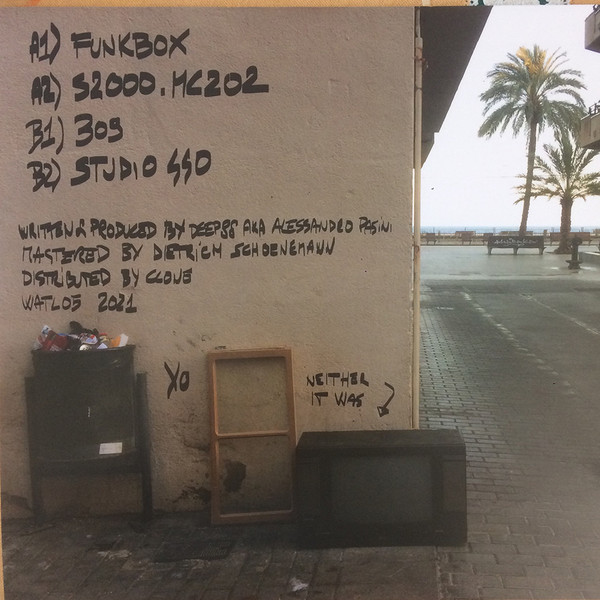 A1) FUNKBOX
A2) S2000.MC202
B1) 309
B2) STUDIO 440
WRITTEN & PRODUCED BY DEEP88 AKA ALESSANDRO PASINI
MASTERED BY DIETRICH SCHOENEMANN
DISTRIBUTED BY CLONE
WATL05 2021
XO
NEITHER
IT WAS